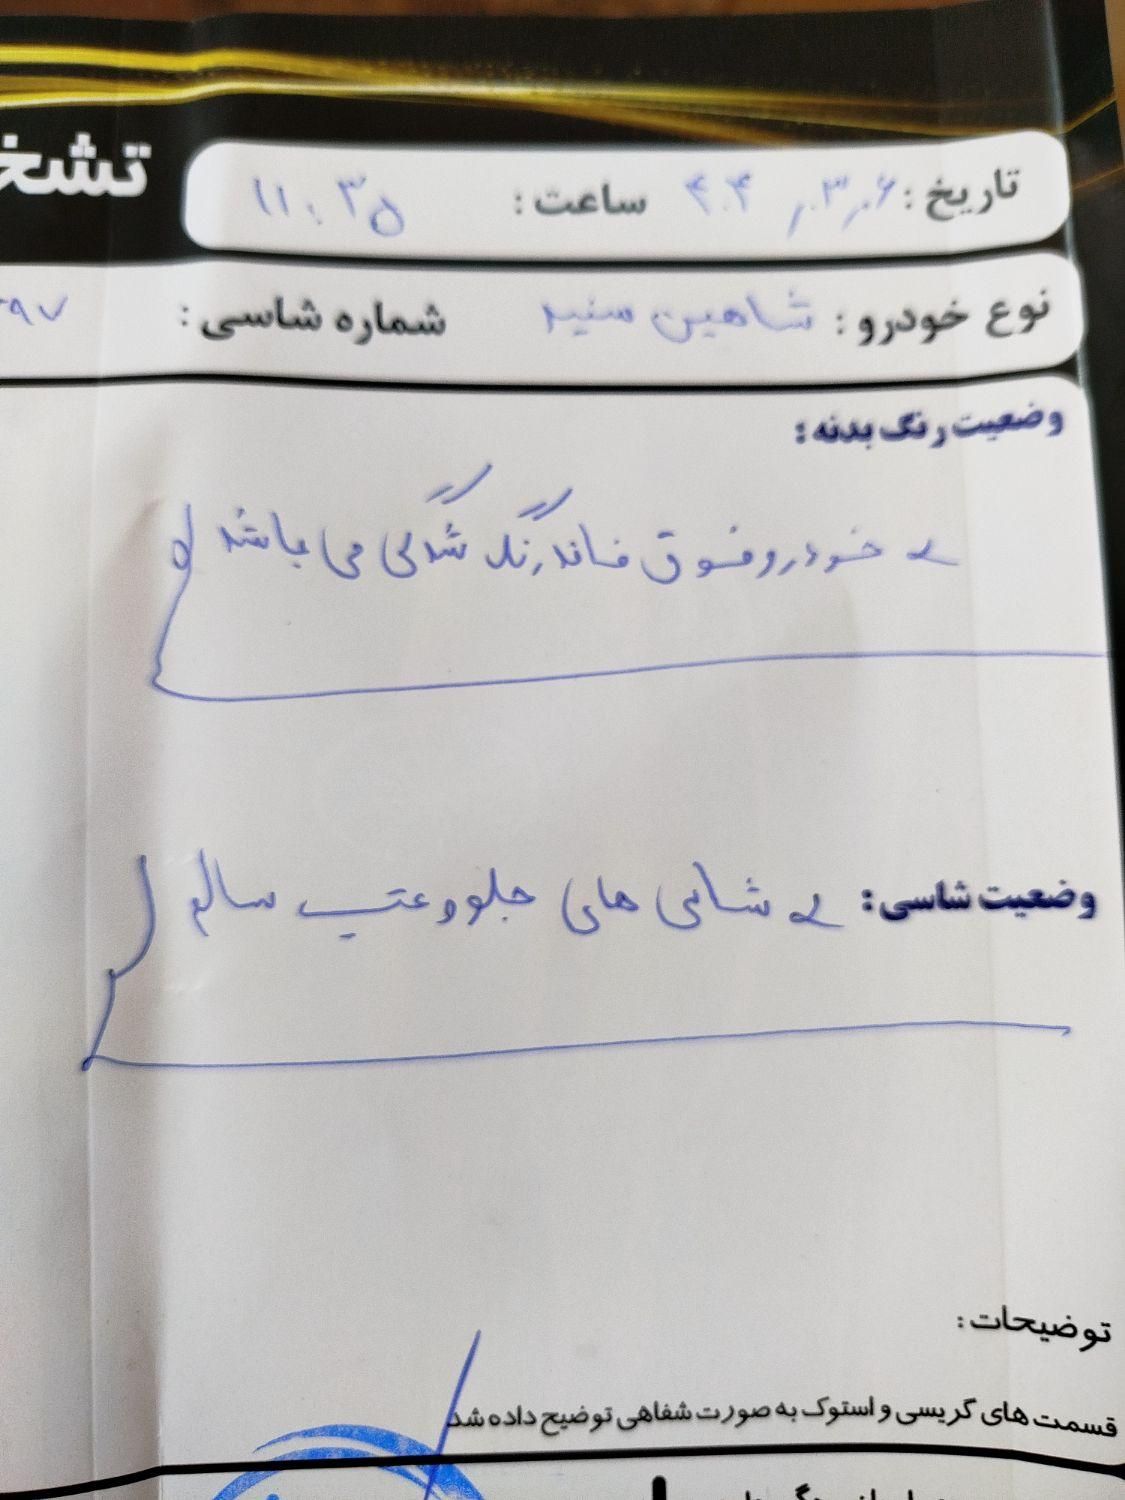 تاریخ: ۴۰۴٫۰۳٫۰۶ ساعت: ۱۱:۳۵
نوع خودرو: شاهین سفید شماره شاسی:
وضعیت رنگ بدنه:
خودرو فوق فاقد رنگ شدگی می باشد
وضعیت شاسی: شاسی های جلو و عقب سالم
توضیحات:
قسمت های گریسی و استوک به صورت شفاهی توضیح داده شد